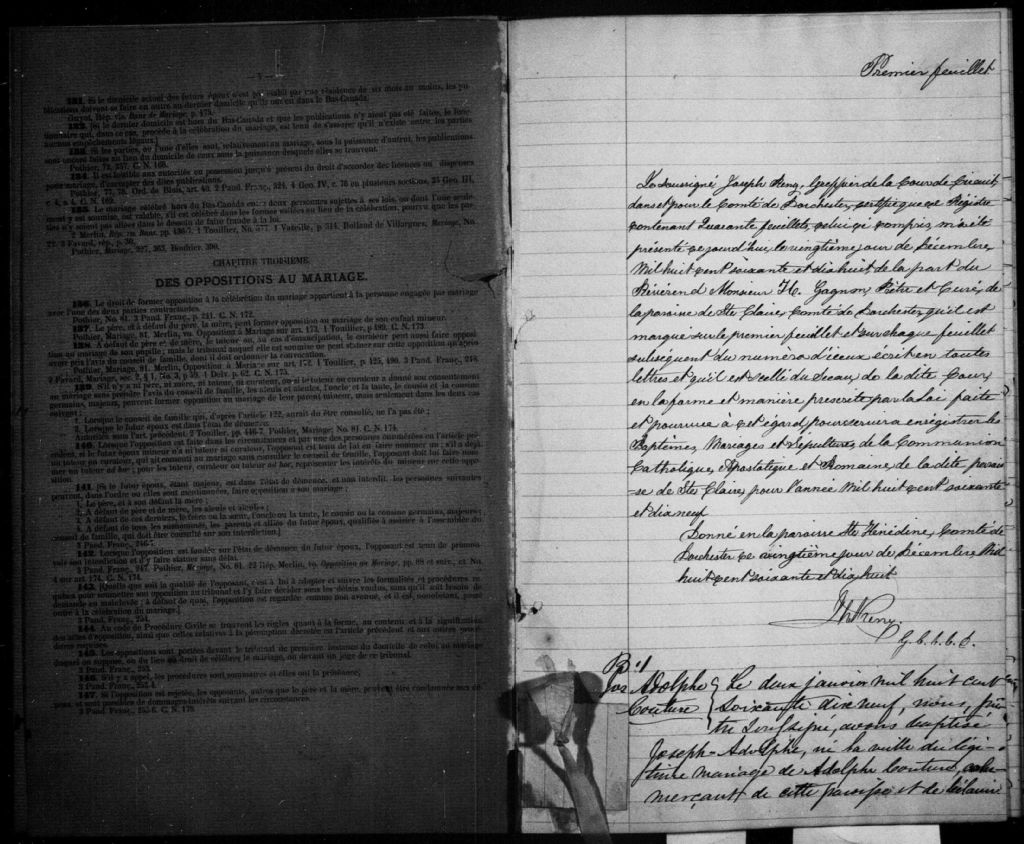 — v —
131. Si le domicile actuel des futurs époux n'est pas établi par une résidence de six mois au moins, les publications doivent se faire en outre au dernier domicile qu'ils ont eu dans le Bas-Canada.
Guyot, Rép. vis. Bans de Mariage, p. 173.
132. [Si le dernier domicile est hors du Bas-Canada et que les publications n'y aient pas été faites, le fonctionnaire qui, dans ce cas, procède à la célébration du mariage, est tenu de s'assurer qu'il n'existe entre les parties aucuns empêchements légaux.]
133. Si les parties, ou l'une d'elles sont, relativement au mariage, sous la puissance d'autrui, les publications sont encore faites au lieu du domicile de ceux sous la puissance desquels elles se trouvent.
C. N. 168.
134. Il est loisible aux autorités en possession jusqu'à présent du droit d'accorder des licences ou dispenses pour mariage, d'exempter des dites publications.
135. Le mariage célébré hors du Bas-Canada entre deux personnes sujettes à ses lois, ou dont l'une seulement y est soumise, est valable, s'il est célébré dans les formes usitées au lieu de la célébration, pourvu que les parties n'y soient pas allées dans le dessein de faire fraude à la loi.
Pothier, Mariage, 327, 363.
CHAPITRE TROISIÈME.
DES OPPOSITIONS AU MARIAGE.
136. Le droit de former opposition à la célébration du mariage appartient à la personne engagée par mariage avec l'une des deux parties contractantes.
Pothier, No. 81. 3 Pand. Franç., p. 241. C. N. 172.
137. Le père, et à défaut du père, la mère, peut former opposition au mariage de son enfant mineur.
138. A défaut de père et de mère, le tuteur ou, au cas d'émancipation, le curateur peut aussi faire opposition au mariage de son pupille; mais le tribunal auquel elle est soumise ne peut statuer sur cette opposition qu'après avoir pris l'avis du conseil de famille, dont il doit ordonner la convocation.
139. S'il n'y a ni père, ni mère, ni tuteur, ni curateur, ou si le tuteur ou curateur a donné son consentement au mariage sans prendre l'avis du conseil de famille, les aïeuls et aïeules, l'oncle et la tante, le cousin et la cousine germains, majeurs, peuvent former opposition au mariage de leur parent mineur, mais seulement dans les deux cas suivant:
1. Lorsque le conseil de famille qui, d'après l'article 122, aurait du être consulté, ne l'a pas été;
2. Lorsque le futur époux est dans l'état de démence.
140. Lorsque l'opposition est faite dans les circonstances et par une des personnes énumérées en l'article précédent, si le futur époux mineur n'a ni tuteur ni curateur, l'opposant est tenu de lui en faire nommer un; s'il a déjà un tuteur ou curateur, qui ait consenti au mariage sans consulter le conseil de famille, l'opposant doit lui faire nommer un tuteur ad hoc; pour les tuteur, curateur ou tuteur ad hoc, représenter les intérêts du mineur sur cette opposition.
141. [Si le futur époux, étant majeur, est dans l'état de démence, et non interdit, les personnes suivantes peuvent, dans l'ordre ou elles sont mentionnées, faire opposition à son mariage;
1. Le père, et à son défaut la mère;
2. A défaut de père et de mère, les aïeuls et aïeules;
3. A défaut de ces derniers, le frère ou la sœur, l'oncle ou la tante, le cousin ou la cousine germains, majeurs;
4. A défaut de tous les susnommés, les parents et alliés du futur époux, qualifiés à assister à l'assemblée du conseil de famille, qui doit être consulté sur son interdiction.]
142. Lorsque l'opposition est fondée sur l'état de démence du futur époux, l'opposant est tenu de promouvoir son interdiction et d'y faire statuer sans délai.
143. [Quelle que soit la qualité de l'opposant, c'est à lui à adopter et suivre les formalités et procédures requises pour soumettre son opposition au tribunal et l'y faire décider sous les délais voulus, sans qu'il soit besoin de demande en mainlevée; à défaut de quoi, l'opposition est regardée comme non avenue, et il est, nonobstant, passé outre à la célébration du mariage.]
3 Pand. Franç., 254.
144. Au code de Procédure Civile se trouvent les règles quant à la forme, au contenu et à la signification des actes d'opposition, ainsi que celles relatives à la péremption décrétée en l'article précédent et aux autres procédures requises.
145. Les oppositions sont portées devant le tribunal de première instance du domicile de celui au mariage duquel on s'oppose, ou du lieu où doit se célébrer le mariage, ou devant un juge de ce tribunal.
3 Pand. Franç., 253.
146. S'il y a appel, les procédures sont sommaires et elles ont la préséance.
147. Si l'opposition est rejetée, les opposants, autres que le père et la mère, peuvent être condamnés aux dépens, et sont passibles de dommages-intérêts suivant les circonstances.
3 Pand. Franç., 255-6. C. N. 179.
Premier feuillet
Je soussigné Joseph Reny, Greffier de la Cour de Circuit,
dans et pour le Comté de Dorchester, certifie que ce Régistre
contenant Quarante feuillets, celui-ci compris, m'a été
présenté ce jourd'hui, le vingtième jour de Décembre,
Mil huit cent soixante et dix huit de la part du
Révérend Monsieur H. Gagnon, Prêtre et Curé, de
la paroisse de Ste Claire, Comté de Dorchester, qu'il est
marqué sur le premier feuillet et sur chaque feuillet
subséquent du numéro d'iceux écrit en toutes
lettres et qu'il est scellé du Sceau, de la dite Cour,
en la forme et manière prescrite par la Loi faite
et pourvue à cet égard, pour servir à enrégistrer les
Baptêmes, Mariages et Sépultures, de la Communion
Catholique, Apostolique et Romaine, de la dite parois-
-se de Ste Claire, pour l'année Mil huit cent soixante
et dix neuf
Donné en la paroisse Ste Hénédine, Comté de
Dorchester ce vingtième jour de Décembre Mil
huit cent soixante et dix huit
Jh Reny
G. C. C. C. D.
B. 1
Jos Adolphe
Couture
Le deux janvier mil huit cent
soixante dix neuf, nous, prê-
tre soussigné, avons baptisé
Joseph-Adolphe, né la veille du légi-
time mariage de Adolphe Couture, com-
merçant de cette paroisse et de